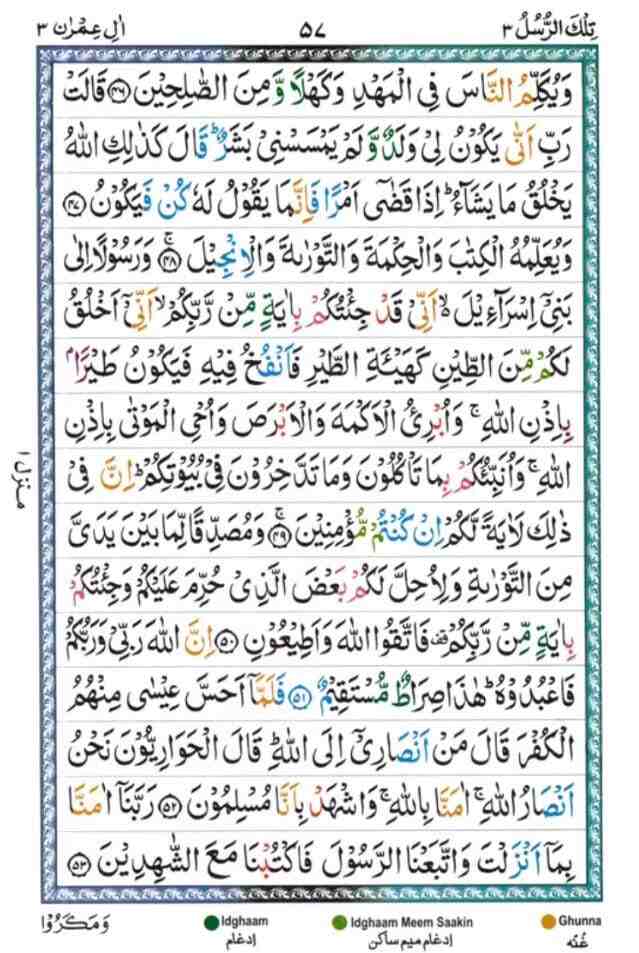 تِلْكَ الرُّسُلُ ٣ ٥٧ اٰلِ عِمْرٰن ٣
وَيُكَلِّمُ النَّاسَ فِي الْمَهْدِ وَكَهْلًا وَّمِنَ الصّٰلِحِيْنَ ﴿٤٦﴾ قَالَتْ
رَبِّ اَنّٰى يَكُوْنُ لِيْ وَلَدٌ وَّلَمْ يَمْسَسْنِيْ بَشَرٌ ؕ قَالَ كَذٰلِكِ اللّٰهُ
يَخْلُقُ مَا يَشَآءُ ؕ اِذَا قَضٰۤى اَمْرًا فَاِنَّمَا يَقُوْلُ لَهٗ كُنْ فَيَكُوْنُ ﴿٤٧﴾
وَيُعَلِّمُهُ الْكِتٰبَ وَالْحِكْمَةَ وَالتَّوْرٰىةَ وَالْاِنْجِيْلَ ۚ ﴿٤٨﴾ وَرَسُوْلًا اِلٰى
بَنِيْۤ اِسْرَآءِيْلَ ۙ اَنِّيْ قَدْ جِئْتُكُمْ بِاٰيَةٍ مِّنْ رَّبِّكُمْ ۙ اَنِّيْۤ اَخْلُقُ
لَكُمْ مِّنَ الطِّيْنِ كَهَيْـَٔةِ الطَّيْرِ فَاَنْفُخُ فِيْهِ فَيَكُوْنُ طَيْرًاۢ
بِاِذْنِ اللّٰهِ ۚ وَاُبْرِئُ الْاَكْمَهَ وَالْاَبْرَصَ وَاُحْيِ الْمَوْتٰى بِاِذْنِ
اللّٰهِ ۚ وَاُنَبِّئُكُمْ بِمَا تَاْكُلُوْنَ وَمَا تَدَّخِرُوْنَ فِيْ بُيُوْتِكُمْ ؕ اِنَّ فِيْ
ذٰلِكَ لَاٰيَةً لَّكُمْ اِنْ كُنْتُمْ مُّؤْمِنِيْنَ ۚ ﴿٤٩﴾ وَمُصَدِّقًا لِّمَا بَيْنَ يَدَيَّ
مِنَ التَّوْرٰىةِ وَلِاُحِلَّ لَكُمْ بَعْضَ الَّذِيْ حُرِّمَ عَلَيْكُمْ وَجِئْتُكُمْ
بِاٰيَةٍ مِّنْ رَّبِّكُمْ ۟ فَاتَّقُوا اللّٰهَ وَاَطِيْعُوْنِ ﴿٥٠﴾ اِنَّ اللّٰهَ رَبِّيْ وَرَبُّكُمْ
فَاعْبُدُوْهُ ؕ هٰذَا صِرَاطٌ مُّسْتَقِيْمٌ ﴿٥١﴾ فَلَمَّاۤ اَحَسَّ عِيْسٰى مِنْهُمُ
الْكُفْرَ قَالَ مَنْ اَنْصَارِيْۤ اِلَى اللّٰهِ ؕ قَالَ الْحَوَارِيُّوْنَ نَحْنُ
اَنْصَارُ اللّٰهِ ۚ اٰمَنَّا بِاللّٰهِ ۚ وَاشْهَدْ بِاَنَّا مُسْلِمُوْنَ ﴿٥٢﴾ رَبَّنَاۤ اٰمَنَّا
بِمَاۤ اَنْزَلْتَ وَاتَّبَعْنَا الرَّسُوْلَ فَاكْتُبْنَا مَعَ الشّٰهِدِيْنَ ﴿٥٣﴾
منزل ١
وَمَكَرُوْا
Idghaam Idghaam Meem Saakin Ghunna
اِدغام اِدغام میم ساکن غُنّه